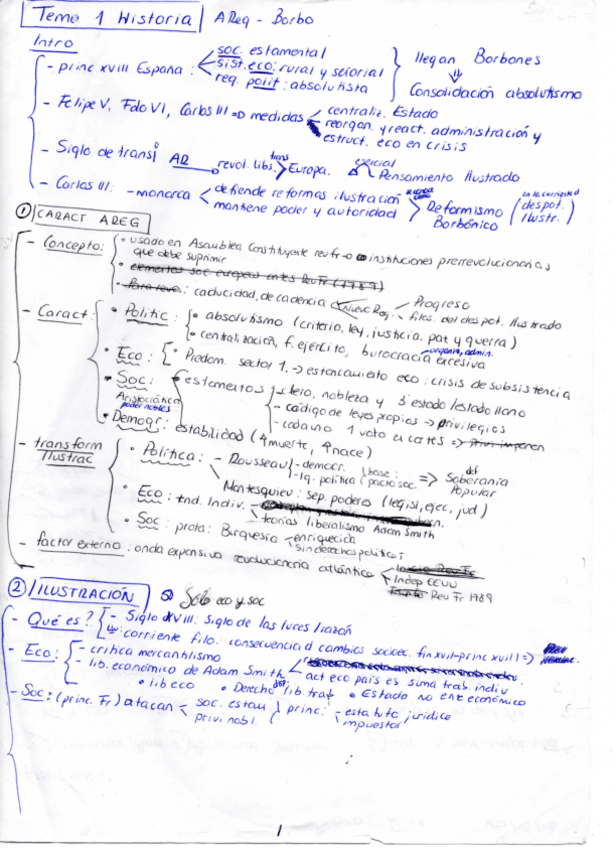 Tema 1 Historia | AReg - Borbo
Intro
- princ XVIII España : soc. estamental
sist. eco: rural y señorial
reg. polit: absolutista
llegan Borbones
⇓
Consolidación absolutismo
- Felipe V, Fdo VI, Carlos III => medidas centraliz. Estado
reorgan. y react. administración y
estruct. eco en crisis
- Siglo de transi AR → revol. libs. trans Europa. Pensamiento Ilustrado
- Carlos III: - monarca defiende reformas ilustración
mantiene poder y autoridad
Reformismo Borbónico (despot. Ilustr.)
① CARACT AREG
- Concepto: • usado en Asamblea Constituyente rev fr → instituciones prerrevolucionarias
que debe suprimir
• elementos soc. europeos antes Rev Fr (1789)
• : caducidad, decadencia Nuevo Reg. - Progreso
- filos. del despot. Ilustrado
- Caract: • Politic: • absolutismo (criterio, ley, justicia, paz y guerra)
• centralización, f. ejército, burocracia excesiva
organiz, admin.
• Eco: • Predom. sector 1. → estancamiento eco: crisis de subsistencia
• Soc: estamentos - clero, nobleza y 3º estado/estado llano
Aristocrática
poder nobles
- código de leyes propios → privilegios
- cada uno 1 voto en cortes =>
• Demogr: estabilidad (↑muerte, ↑nace)
- transform Ilustrac
• Política: - Rousseau - democr.
- Ig. política (base: pacto soc. => def Soberanía Popular
- Montesquieu: sep. poderes (legisl, ejec, jud)
• Eco: Ind. Indiv.
teorías liberalismo Adam Smith
• Soc: prota: Burguesía enriquecida
sin derechos políticos
- factor externo: onda expansiva revolucionaria atlántica
Indep EEUU
Rev Fr 1789
② ILUSTRACIÓN Solo eco y soc
- Qué es? - Siglo XVIII: Siglo de las luces/razón
- corriente filo. consecuencia d cambios socioec. fin XVII-princ XVIII =>
- Eco: - critica mercantilismo
- lib. económico de Adam Smith
act eco país es suma trab. indiv
• lib eco • Derecho lib. trat • Estado no ente económico
- Soc: (princ. Fr) atacan soc. estam
privi nobl.
princ: - estatuto jurídico
impuestos
1